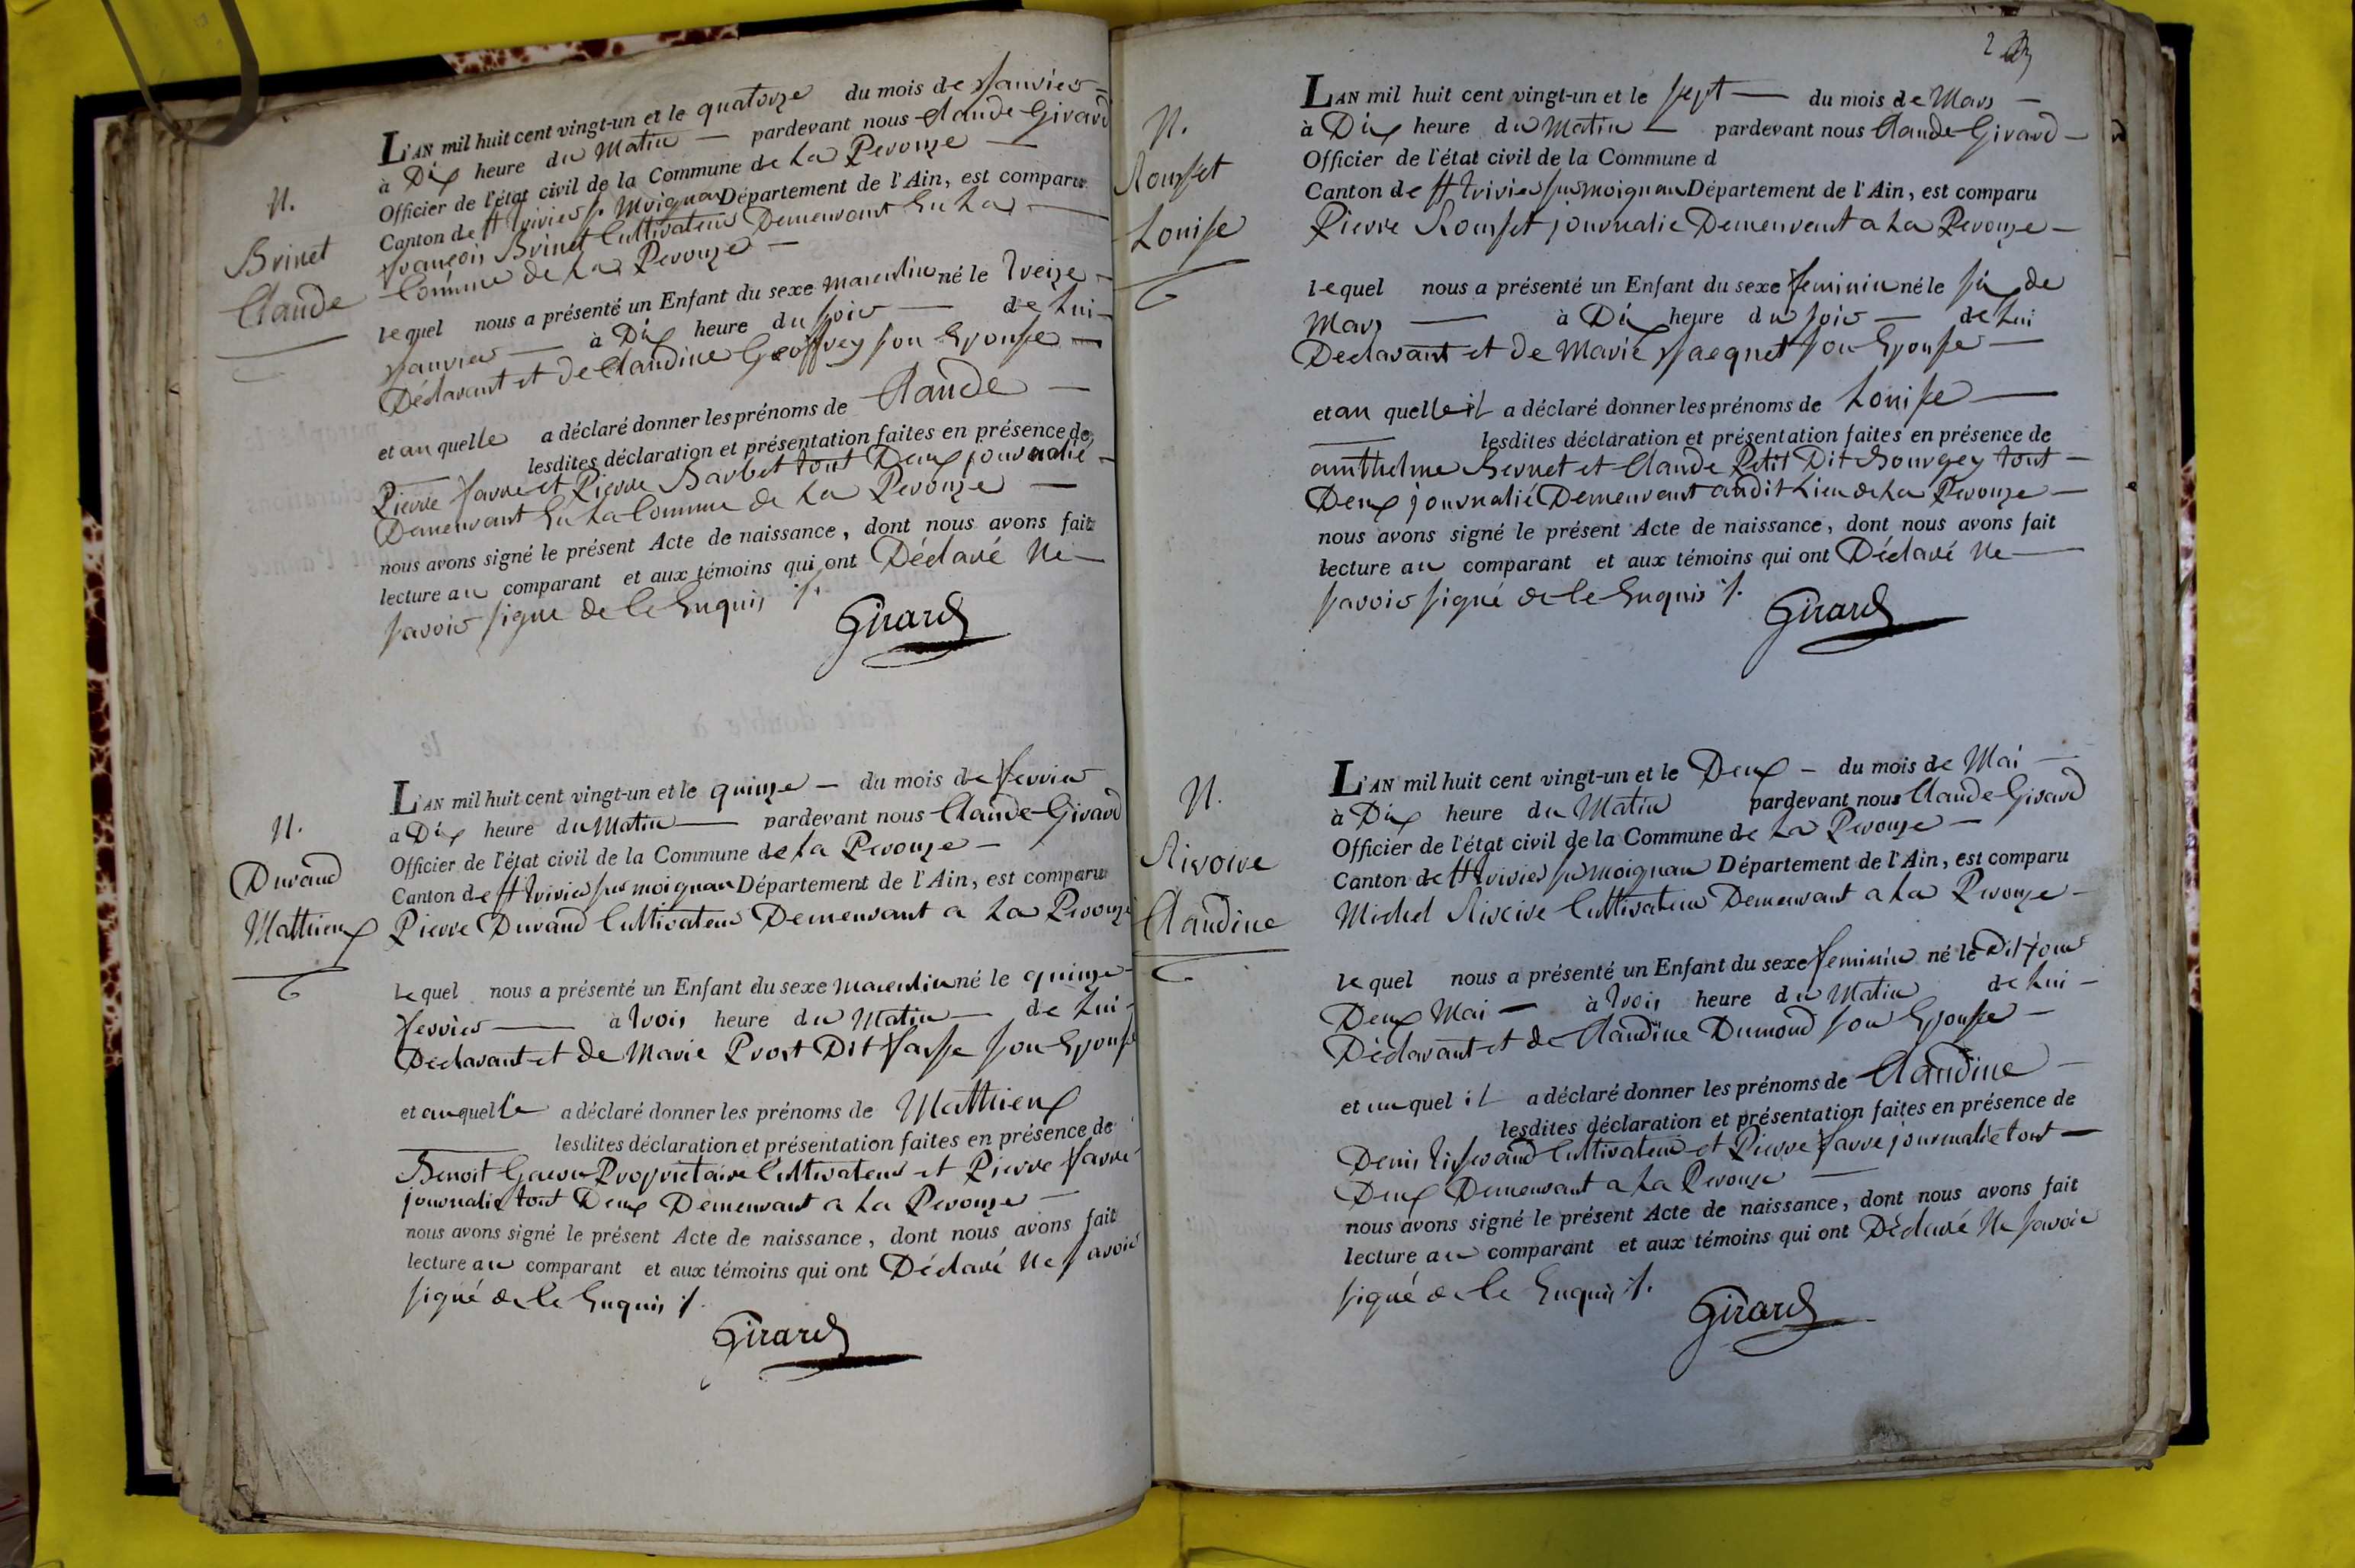 N.
Brinet
Claude
L'AN mil huit cent vingt-un et le quatorze du mois de Janvier
à Dix heure du Matin pardevant nous Claude Girard
Officier de l'état civil de la Commune de La Perouze
Canton de St trivier s. Moignan Département de l'Ain, est comparu
françois Brinet Cultivateur Demeurant En La
Commune de La Perouze
lequel nous a présenté un Enfant du sexe masculin né le treize
Janvier à Dix heure du soir de Lui
Déclarant et de Claudine Geoffrey son Epouse
et au quelle a déclaré donner les prénoms de Claude
lesdites déclaration et présentation faites en présence de
Pierre favre et Pierre Barbet tout Deux journalié
Demeurant En La Commune de La Perouze
nous avons signé le présent Acte de naissance, dont nous avons fait
lecture au comparant et aux témoins qui ont Déclaré Ne
savoir signe de le Enquis ./.
Girard
N.
Durand
Mathieux
L'AN mil huit cent vingt-un et le quinze du mois de fevrier
à Dix heure du Matin pardevant nous Claude Girard
Officier de l'état civil de la Commune de La Perouze
Canton de St trivier sur moignan Département de l'Ain, est comparu
Pierre Durand Cultivateur Demeurant a La Perouze
lequel nous a présenté un Enfant du sexe masculin né le quinze
fevrier à trois heure du Matin de Lui
Déclarant et de Marie Prost Dit Jasse son Epouse
et au quelle a déclaré donner les prénoms de Mathieux
lesdites déclaration et présentation faites en présence de
Benoit Propriétaire Cultivateur et Pierre favre
journalié tout Deux Demeurant a La Perouze
nous avons signé le présent Acte de naissance, dont nous avons fait
lecture au comparant et aux témoins qui ont Déclaré Ne savoir
signé de le Enquis ./.
Girard
2
N.
Rousset
Louise
L'AN mil huit cent vingt-un et le sept du mois de Mars
à Dix heure du Matin pardevant nous Claude Girard
Officier de l'état civil de la Commune d
Canton de St trivier sur moignan Département de l'Ain, est comparu
Pierre Rousset journalié Demeurent a La Perouze
lequel nous a présenté un Enfant du sexe feminin né le six de
Mars à Dix heure du soir de Lui
Declarant et de Marie Jacquet son Epouse
et au quelle il a déclaré donner les prénoms de Louise
lesdites déclaration et présentation faites en présence de
anthelme Bernet et Claude Petit Dit Bourgey tout
Deux journalié Demeurant audit Lieu de La Perouze
nous avons signé le présent Acte de naissance, dont nous avons fait
lecture au comparant et aux témoins qui ont Déclaré Ne
savoir signé de le Enquis ./.
Girard
N.
Rivoire
Claudine
L'AN mil huit cent vingt-un et le Deux du mois de Mai
à Dix heure du Matin pardevant nous Claude Girard
Officier de l'état civil de la Commune de La Perouze
Canton de St trivier sur moignan Département de l'Ain, est comparu
Michel Rivoire Cultivateur Demeurant a La Perouze
lequel nous a présenté un Enfant du sexe feminin né le Dit jour
Deux Mai à trois heure du Matin de Lui
Déclarant et de Claudine Dumond son Epouse
et au quel il a déclaré donner les prénoms de Claudine
lesdites déclaration et présentation faites en présence de
Denis Tisserand Cultivateur et Pierre favre journalié tout
Deux Demeurant a La Perouze
nous avons signé le présent Acte de naissance, dont nous avons fait
lecture au comparant et aux témoins qui ont Déclaré Ne savoir
signé de le Enquis ./.
Girard